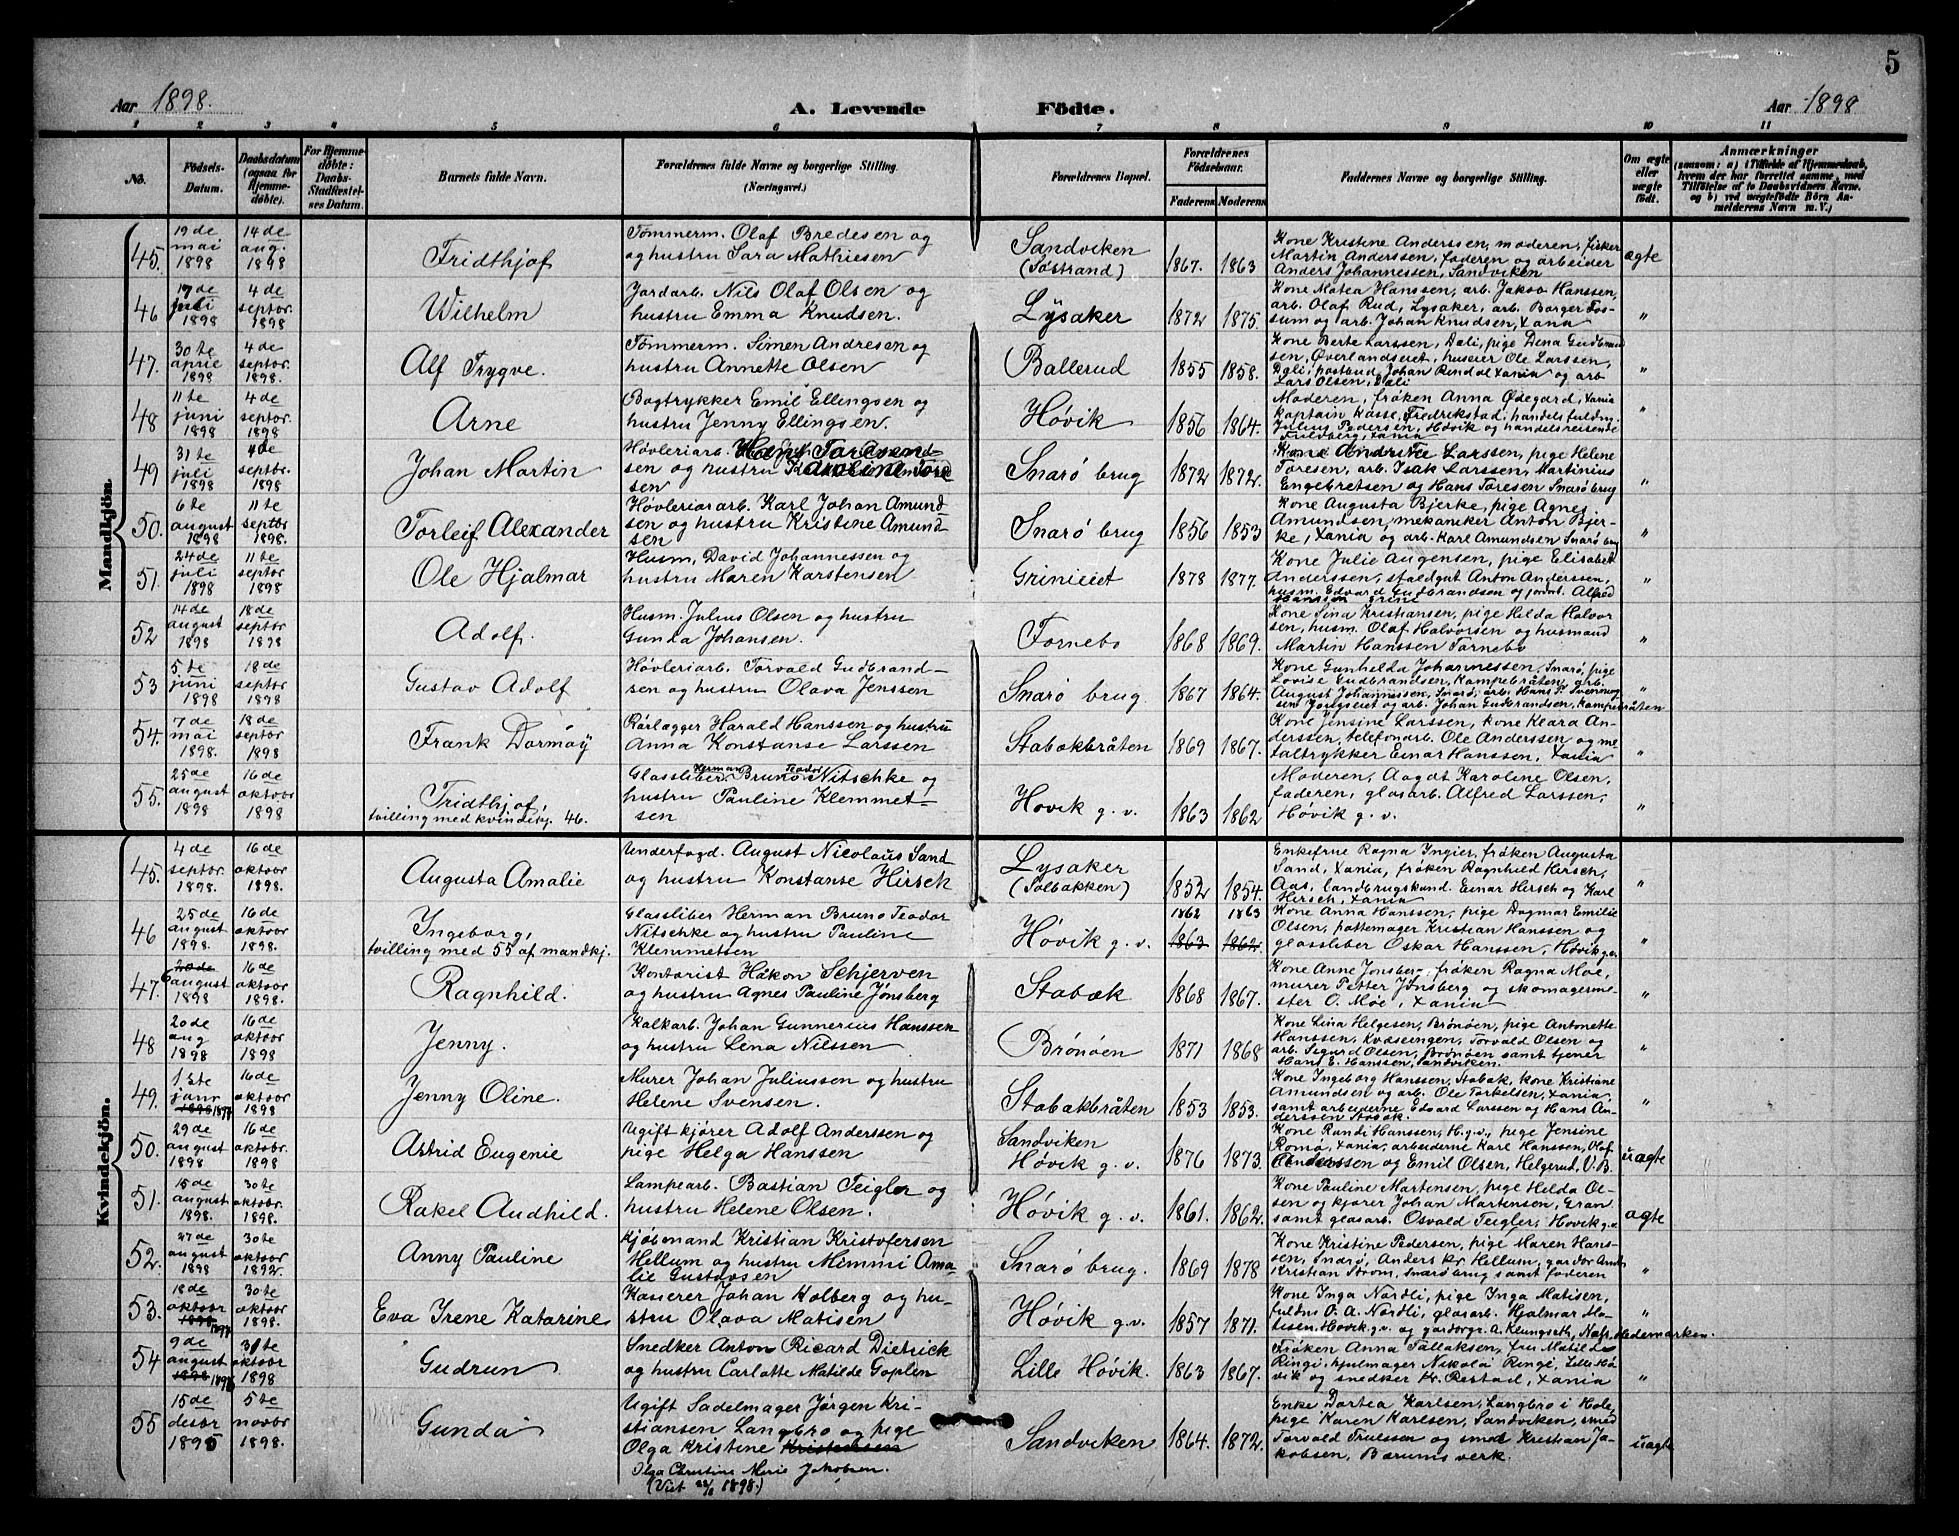 5
Aar 1898.
A. Levende Födte.
Aar 1898
1 2 3 4 5 6 7 8 9 10 11
No.
Födsels-
Datum.
Daabsdatum
(ogsaa for
Hjemme-
döbte).
For Hjemme-
döbte:
Daabs-
Stadfæstel-
ses Datum.
Barnets fulde Navn.
Forældrenes fulde Navne og borgerlige Stilling.
(Næringsvei.)
Forældrenes Bopæl.
Forældrenes
Födselsaar.
Faderens Moderens
Faddernes Navne og borgerlige Stilling.
Om ægte
eller
uægte
født.
Anmærkninger
(saasom: a) i Tilfælde af Hjemmedaab,
hvem der har forrettet samme, med
Tilföielse af to Daabsvidners Navne,
og b) ved uægtefödte Börn An-
melderens Navn m. V.)
Mandkjön.
45. 19 de mai 1898 14 de aug. 1898 Fridthjof
Tømmerm. Olaf Bredesen og
og hustru Sara Mathiesen
Sandviken (Søstrand) 1867. 1863
Kone Kristine Anderssen, moderen, fisker
Martin Anderssen, faderen og arbeider
Anders Johannessen, Sandviken
ægte
46 juli 1898 4 de septbr. 1898 Wilhelm
Jordarb. Nils Olaf Olsen og
hustru Emma Knudsen.
Lysaker 1872 1875.
Kone Matea Hanssen, arb. Jakob Hanssen,
arb. Olaf Rud, Lysaker, arb. Borger Fos-
sum og arb. Johan Knudsen, Xania
"
47. 30 te april 1898 4 de septbr. 1898. Alf Trygve.
Tømmerm. Simen Andresen og
hustru Annette Olsen
Ballerud 1855 1858.
Kone Berte Larssen, Dæli, pige Dena Gudbrand
sen, Øverlandseiet, huseier Ole Larssen,
Dæli, postbud Johan Rindal Xania og arb
Lars Olsen, Dæli
"
48 11 te juni 1898 4 de septbr. 1898 Arne
Bogtrykker Emil Ellingsen og
hustru Jenny Ellingsen.
Høvik 1856 1864.
Moderen, frøken Anna Ødegård, Xania
kaptain Fredrikstad, handelsfuldm.
Julius Pedersen, Høvik og handelsreisende
Xania
"
49 31 te juli 1898 4 de septbr. 1898 Johan Martin
Høvleriarb. Hans
sen og hustru Karoline
sen
Snarø brug 1872 1872.
Kone Larssen, pige Helene
Toresen, arb. Isak Larssen, Martinius
Engebretsen og Hans Toresen Snarø brug
"
50. 6 te august 1898 11 te septbr 1898. Torleif Alexander
Høvleriarb. Karl Johan Amund-
sen og hustru Kristine Amund-
sen
Snarø brug 1856 1853
Kone Augusta Bjerke, pige Agnes
Amundsen, mekaniker Anton Bjer-
ke, Xania og arb. Karl Amundsen Snarø brug
"
51. 24 de juli 1898 11 te septbr 1898 Ole Hjalmar
Husm. David Johannessen og
hustru Maren Karstensen
Grinieiet 1878 1877.
Kone Julie Augensen, pige Elisabet
Anderssen, staldgut Anton Anderssen,
husm. Edvard Gudbrandsen og Alfred
Hanssen Grini
"
52 14 de august 1898 18 de septbr 1898 Adolf.
Husm. Julius Olsen og hustru
Gunda Johansen.
Fornebo 1868 1869.
Kone Lina Kristiansen, pige Hilda Halvor
sen, husm. Olaf Halvorsen og husmand
Martin Hanssen Fornebo
"
53 5 te juni 1898 18 de septbr 1898 Gustav Adolf
Høvleriarb. Torvald Gudbrand-
sen og hustru Olava Jenssen
Snarø brug 1867 1864.
Kone Gunhilda Johannessen, Snarø, pige
Lovise Gudbrandsen, Kampebråten, arb.
August Johannessen, Snarø, arb. Hans P. Svennug
sen og arb. Johan Gudbrandsen, Kampebråten
"
54. 7 de mai 1898. 18 de septbr 1898 Frank Dormøy
Rørlægger Harald Hanssen og hustru
Anna Konstanse Larssen
Stabækbråten 1869 1867.
Kone Jensine Larssen, kone Klara An-
derssen, telefonarb. Ole Anderssen og me-
taltrykker Einar Hanssen, Xania
"
55. 25 de august 1898 16 de oktobr 1898 Fridthjof,
tvilling med kvindekj. 46.
Glassliber Herman Bruno Teodor Nitschke og
hustru Pauline Klemmet-
sen
Høvik g. v. 1863 1862
Moderen, Aagot Karoline Olsen,
faderen, glasarb. Alfred Larssen,
Høvik g. v.
"
Kvindekjön.
45. 4 de septbr. 1898. 16 de oktobr 1898. Augusta Amalie
Underfogd. August Nicolaus Sand
og hustru Konstanse Hirsch
Lysaker (Solbakken) 1852 1854.
Enkefrue Ragna Ingier, frøken Augusta
Sand, Xania, frøken Ragnhild Hirsch,
Aas, landbrugskand. Einar Hirsch og Karl
Hirsch, Xania
"
46 25 de august 1898. 16 de oktobr 1898. Ingeborg,
tvilling med 55 af mandkj.
Glassliber Herman Bruno Teodor
Nitschke og hustru Pauline
Klemmetsen
Høvik g. v. 1862 1863 1863 1862
Kone Anna Hanssen, pige Dagmar Emilie
Olsen, pottemager Kristian Hanssen og
glassliber Oskar Hanssen, Høvik g.v.
"
47. 20 de 6 august 1898 16 de oktobr 1898. Ragnhild.
Kontorist Håkon Schjerven
og hustru Agnes Pauline Jønsberg
Stabæk 1868 1867.
Kone Anne Jonsberg, frøken Ragna Moe,
murer Petter Jønsberg og skomagerme-
ster O. Moe, Xania
"
48 20 de aug 1898 16 de oktobr 1898 Jenny.
Kalkarb. Johan Gunnerius Hanssen
og hustru Lena Nilssen
Brønøen 1871 1868
Kone Lina Helgesen, Brønøen, pige Antonette
Hanssen, Torvald Olsen og
arb. Sigurd Olsen, Brønøen samt tjener
Hans E. Hanssen, Sandviken
"
49. 1 ste janr 1898 1897 16 de oktobr 1898 Jenny Oline.
Murer Johan Juliussen og hustru
Helene Svensen.
Stabækbråten 1853 1853.
Kone Ingeborg Hanssen, Stabæk, kone Kristiane
Amundsen og arb. Ole Torkelsen, Xania,
samt arbeiderne Edvard Larssen og Hans An-
derssen, Stabæk.
"
50. 29 de august 1898 16 de oktobr. 1898 Astrid Eugenie
Ugift kjører Adolf Anderssen og
pige Helga Hanssen
Sandviken
Høvik g. v. 1876 1873.
Kone Randi Hanssen, H.g.v., pige Jensine
Romø, Xania, arbeiderne Karl Hanssen, Olaf
Anderssen og Emil Olsen, Helgerud, V. B.
uægte
51. 15 de august 1898. 30 te oktobr 1898. Rakel Audhild.
Lampearb. Bastian Teigler og
hustru Helene Olsen.
Høvik g. v. 1861. 1862.
Kone Pauline Martensen, pige Hilda Ol-
sen og kjører Johan Martinsen, Gran
samt glasarb. Osvald Teigler, Høvik g.v.
ægte
52. 27 de august 1898 30 te oktobr 1892. Anny Pauline
Kjøbmand Kristian Kristofersen
Hellum og hustru Mimmi Ama-
lie Gustavsen
Snarø brug. 1869 1878
Kone Kristine Pedersen, pige Maren Hans-
sen, Snarø, Anders Kr. Hellum,
Kristian Strøm, Snarø brug samt faderen
"
53. 18 de oktobr 1898 1897 30 te oktobr 1898. Eva Irene Katarine
Kasserer Johan Kolberg og hu-
stru Olava Matisen
Høvik g.v. 1857 1871.
Kone Inga Nordli, pige Inga Matisen,
fuldm. O. A. Nordli, glasarb. Hjalmar Ma-
tisen, Høvik g.v. og gårdbrgr. A. Klungseth, Næs, Hedemarken.
"
54 9 de august 1898 1896 31 te oktobr 1898 Gudrun
Snedker Anton Ricard Dietrich
og hustru Carlotte Matilde Goplen
Lille Høvik. 1863 1867.
Frøken Anna Tallaksen, fru Matilde
Ringi, hjulmager Nikolai Ringi, Lille Hø
vik og snedker Kr. Restad, Xania
"
55 15 de desbr 1895 5 te novbr 1898. Gunda
Ugift Sadelmager Jørgen Kri-
stiansen Langbro og pige
Olga Kristine Kristensen
Olga Christine Marie Jakobsen.
(Viet 1898.)
Sandviken 1864. 1872.
Enke Dortea Karlsen, Langbro i Hole,
pige Karen Karlsen, Sandviken, smed
Torvald Truelssen og smed Kristian Ja-
kobsen, Bærums verk.
uægte